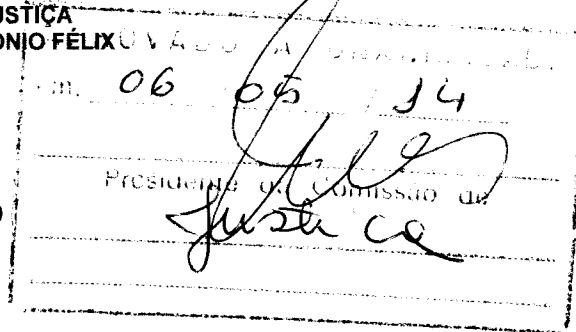 USTIÇA
ONIO FÉLIX
06 05 14
Presidente da Comissão de
Justiça